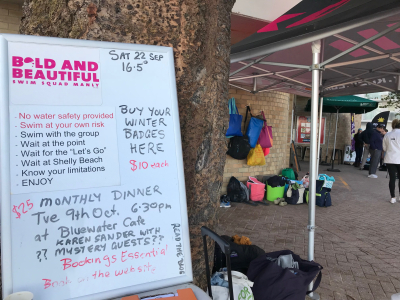 BOLD AND
BEAUTIFUL
SWIM SQUAD MANLY
SAT 22 SEP
16.5°
- No water safety provided
- Swim at your own risk
- Swim with the group
- Wait at the point
- Wait for the "Let's Go"
- Wait at Shelly Beach
- Know your limitations
- ENJOY
BUY YOUR
WINTER
BADGES
HERE
$10 each
$25 MONTHLY DINNER
Tue 9th Oct. 6:30pm
at Bluewater Cafe
KAREN SANDER WITH
?? MYSTERY GUESTS??
Bookings Essential
Book on the website
READ THE BUOY